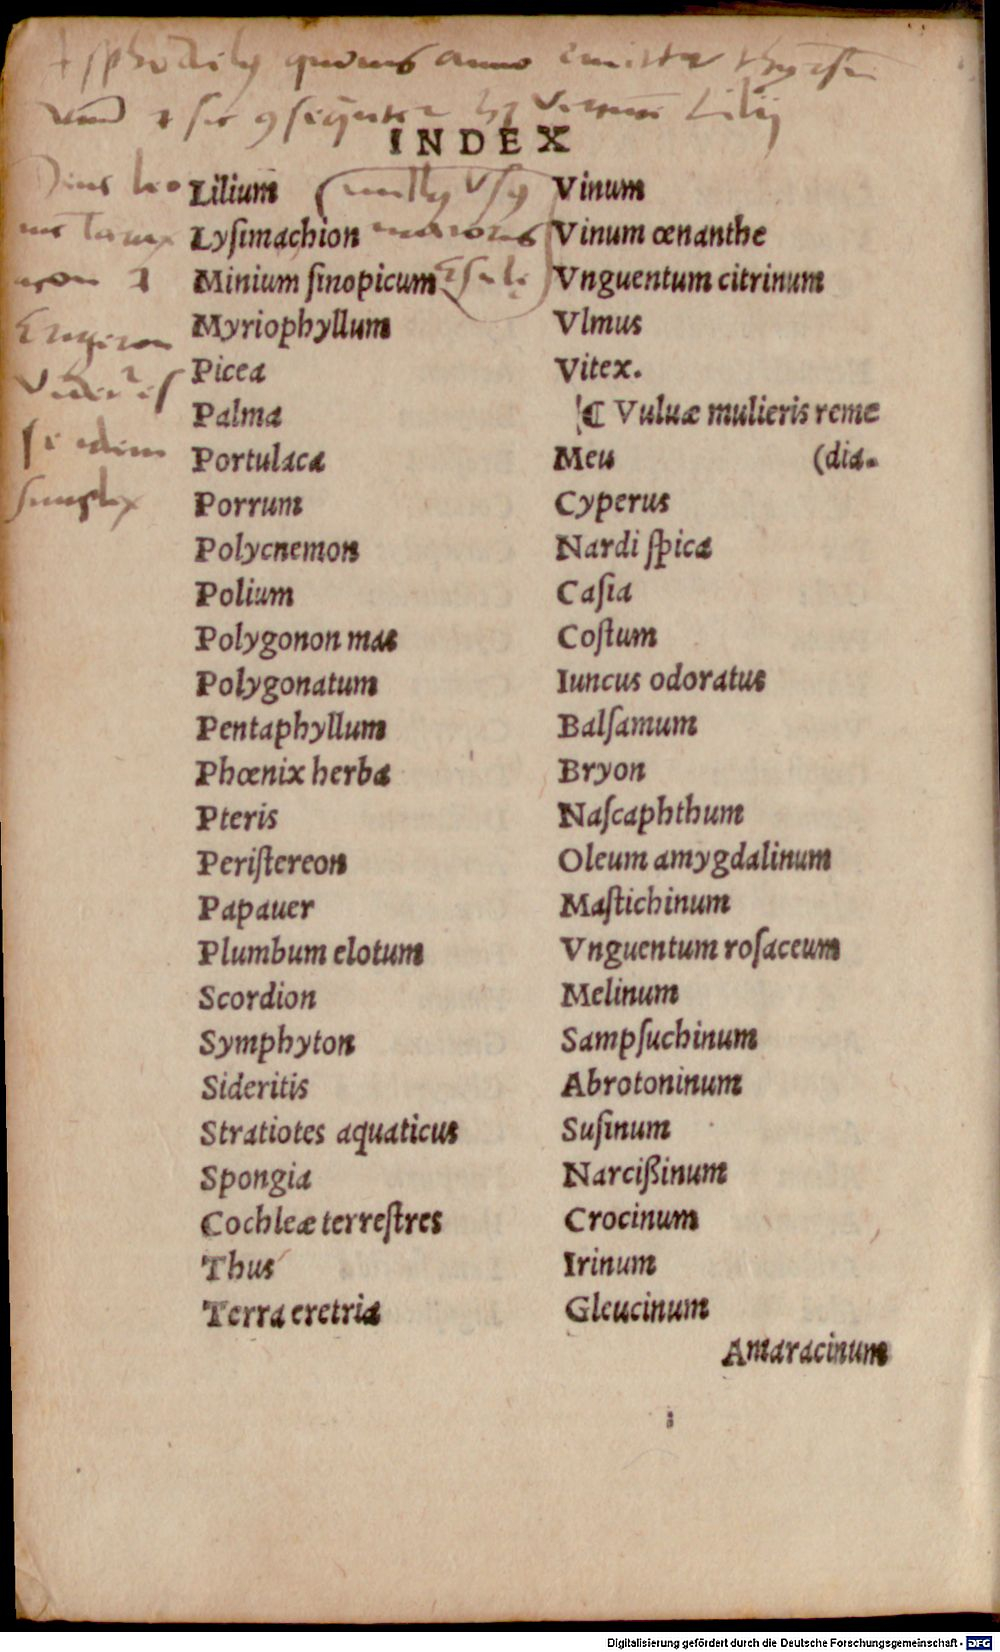 quouis anno
Lilij
INDEX
Lilium
Lyſimachion
Minium ſinopicum
Myriophyllum
Picea
Palma
Portulaca
Porrum
Polycnemon
Polium
Polygonon mas
Polygonatum
Pentaphyllum
Phœnix herba
Pteris
Periſtereon
Papauer
Plumbum elotum
Scordion
Symphyton
Sideritis
Stratiotes aquaticus
Spongia
Cochleæ terreſtres
Thus
Terra eretria
Vinum
Vinum œnanthe
Vnguentum citrinum
Vlmus
Vitex.
¶ Vuluæ mulieris reme
Meu (dia.
Cyperus
Nardi ſpica
Caſia
Coſtum
Iuncus odoratus
Balſamum
Bryon
Naſcaphthum
Oleum amygdalinum
Maſtichinum
Vnguentum roſaceum
Melinum
Sampſuchinum
Abrotoninum
Suſinum
Narcißinum
Crocinum
Irinum
Gleucinum
Amaracinum
Digitalisierung gefördert durch die Deutsche Forschungsgemeinschaft - DFG